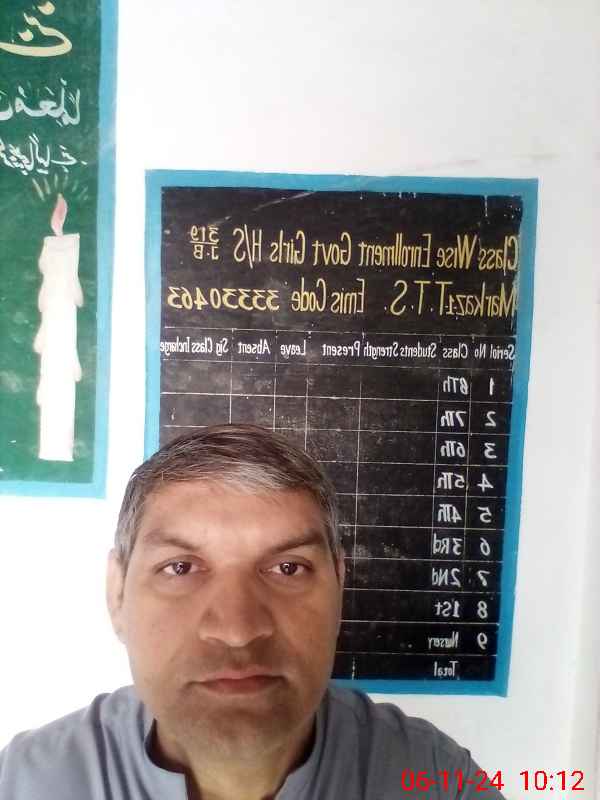 Class Wise Enrollment Govt Girls H/S 319/J.B
Markaz T.T.S. Emis Code 33330463
Seriol No Class Students Strength Present Leave Absent Sig Class Incharge
1 8Th
2 7Th
3 6Th
4 5Th
5 4Th
6 3Rd
7 2Nd
8 1St
9 Nursery
Total
06-11-24 10:12